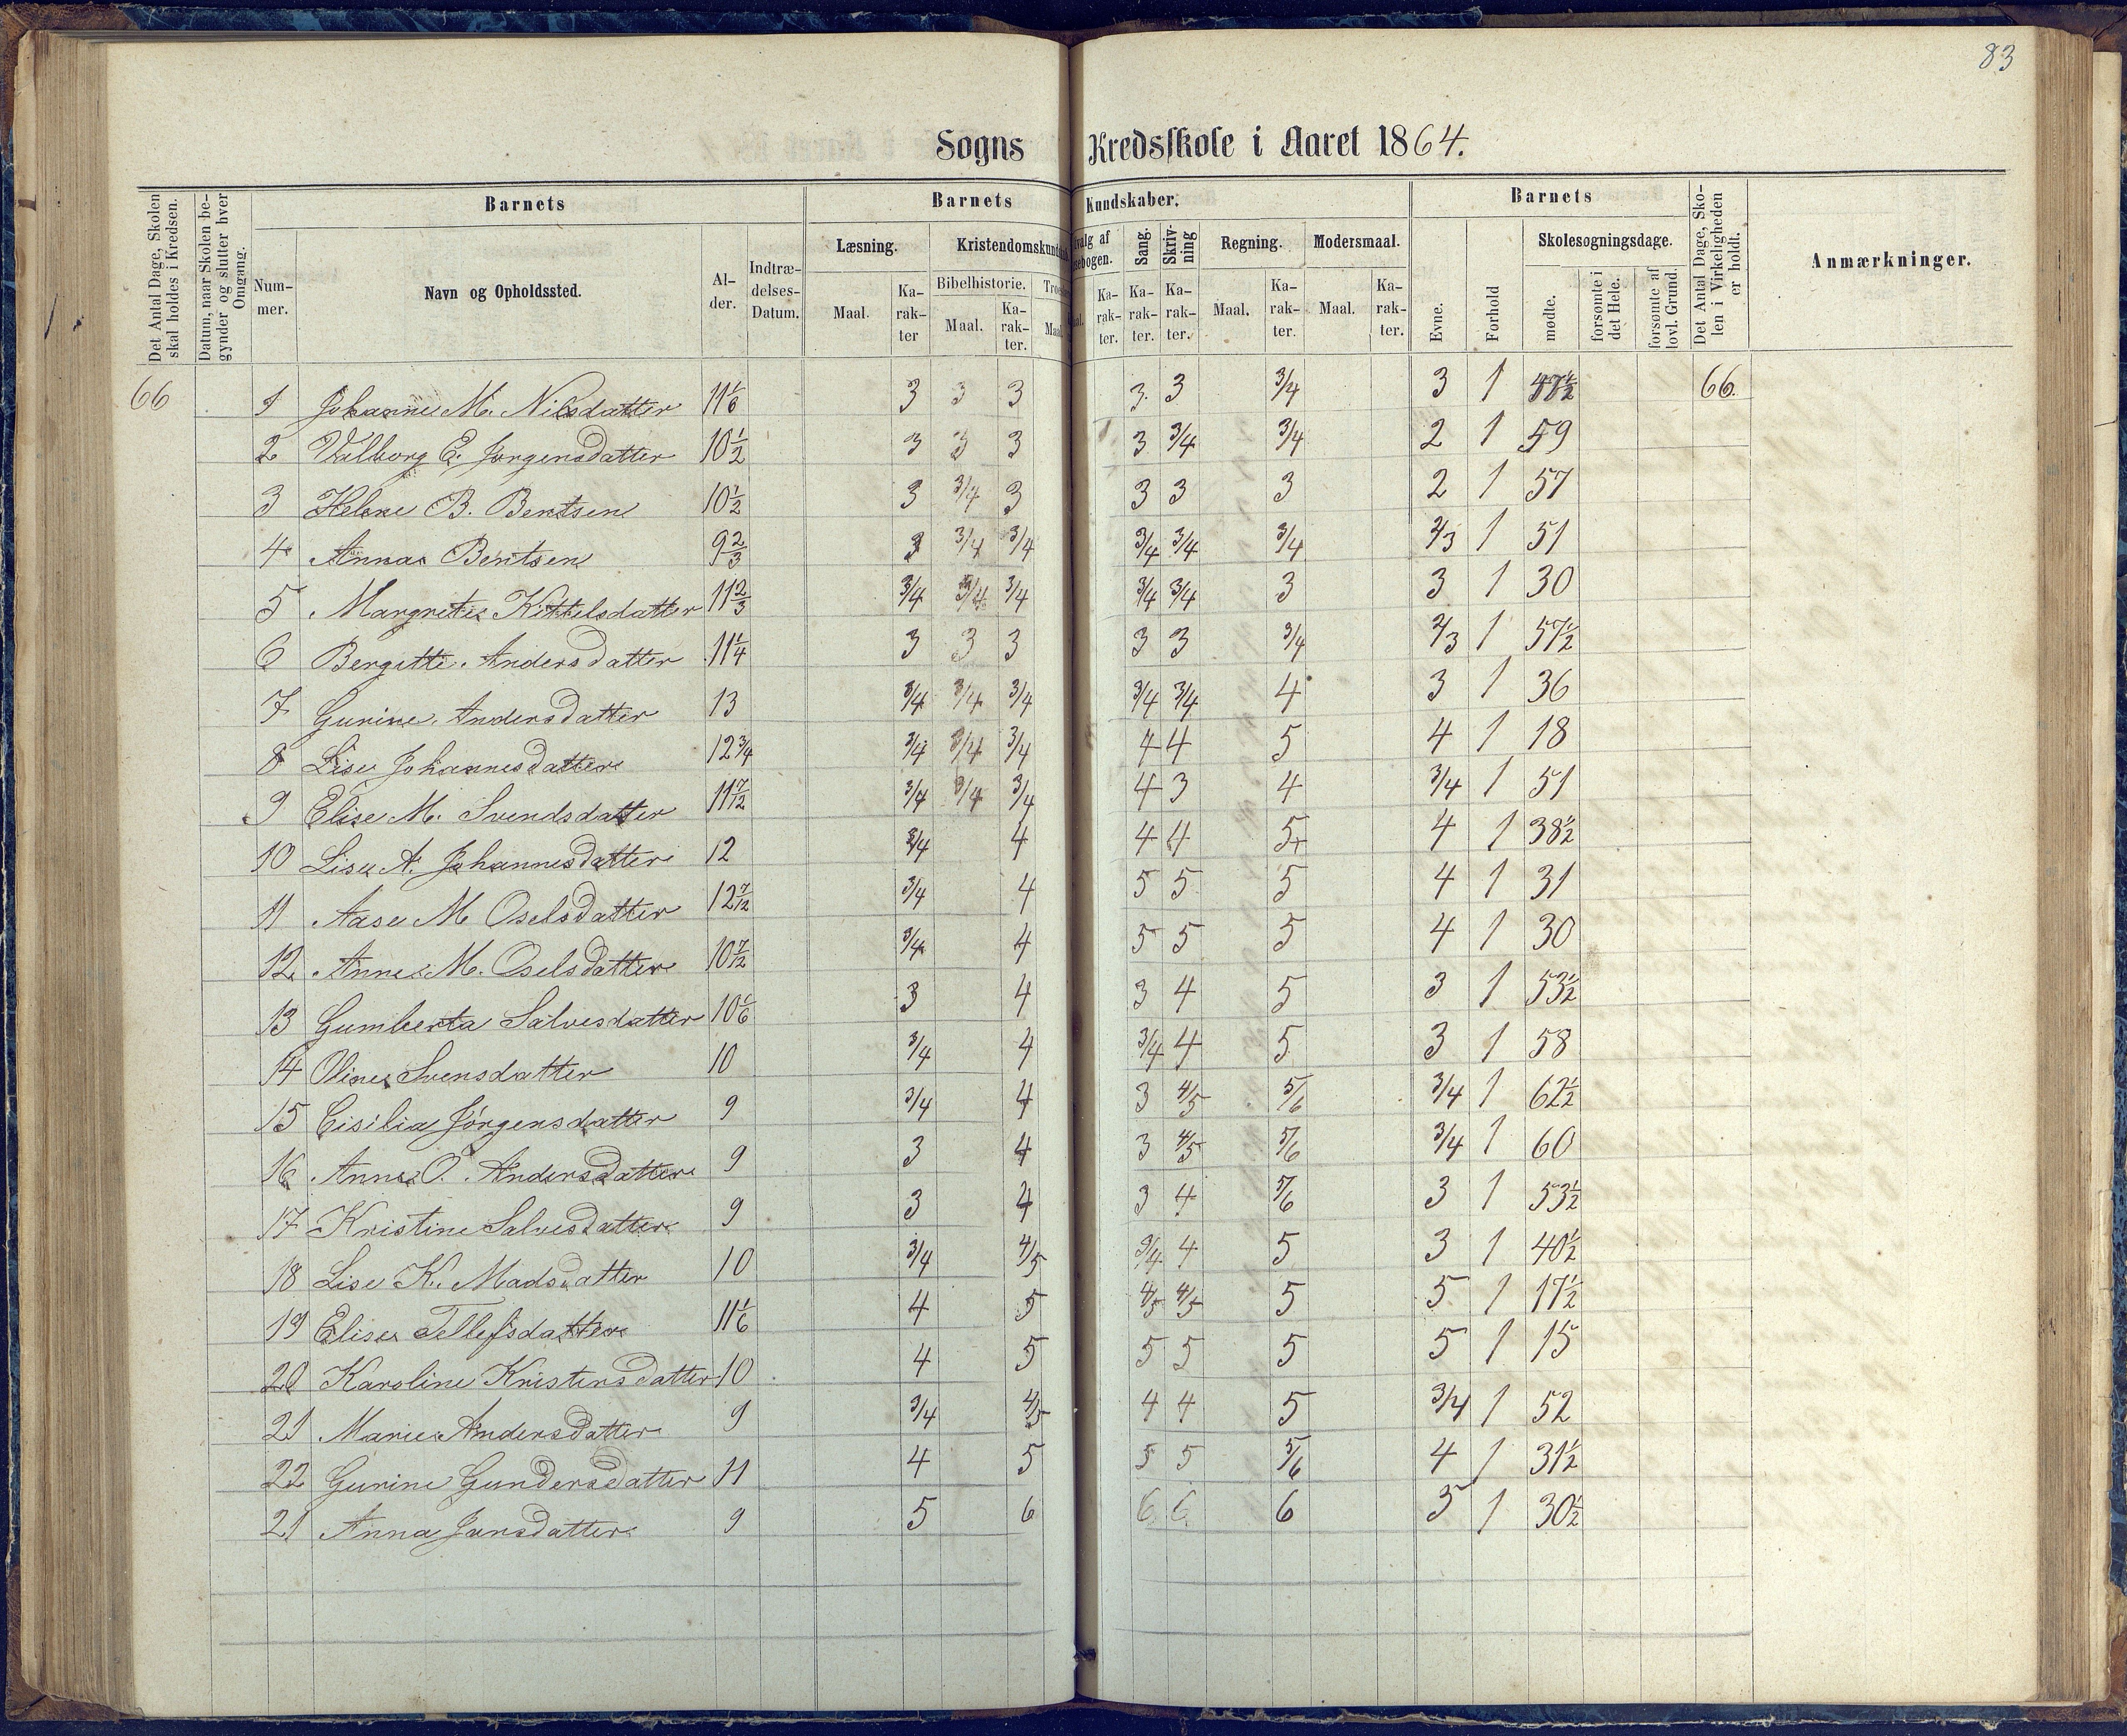 83
Sogns Kredsskole i Aaret 1864.
Det Antal Dage, Skolen skal holdes i Kredsen.
Datum, naar Skolen begynder og slutter hver Omgang.
Barnets
Nummer.
Navn og Opholdssted.
Alder.
Indtrædelses-Datum.
Barnets Kundskaber.
Læsning.
Maal.
Karakter
Kristendomskundsk
Bibelhistorie.
Maal.
Karakter.
Troe
Maal
valg af
sebogen.
Karakter.
Sang.
Karakter.
Skrivning
Karakter.
Regning.
Maal.
Karakter.
Modersmaal.
Maal.
Karakter.
Barnets
Evne.
Forhold
Skolesøgningsdage.
mødte.
forsømte i det Hele.
forsømte af lovl. Grund.
Det Antal Dage, Skolen i Virkeligheden er holdt.
Anmærkninger.
66 1 Johanne M. Nilsdatter 11 1/6 3 3 3 3 3 3/4 3 1 57½ 66.
2 Valborg E. Jørgensdatter 10½ 3 3 3 3 3/4 3/4 2 1 59
3 Helene B. Bentsen 10½ 3 3/4 3 3 3 3 2 1 57
4 Anna Bentsen 9 2/3 3 3/4 3/4 3/4 3/4 3/4 2/3 1 51
5 Margrete Kittelsdatter 11 2/3 3/4 3/4 3/4 3/4 3/4 3 3 1 30
6 Bergitte Andersdatter 11¼ 3 3 3 3 3 3/4 2/3 1 57½
7 Gurine Andersdatter 13 3/4 3/4 3/4 3/4 3/4 4 3 1 36
8 Lise Johannesdatter 12¾ 3/4 3/4 3/4 4 4 5 4 1 18
9 Elise M. Svendsdatter 11 7/12 3/4 3/4 3/4 4 3 4 3/4 1 51
10 Lise A. Johannesdatter 12 3/4 4 4 4 5+ 4 1 38½
11 Aase M Oselsdatter 12 7/12 3/4 4 5 5 5 4 1 31
12 Anne M. Oselsdatter 10 7/12 3/4 4 5 5 5 4 1 30
13 Gumberta Salvesdatter 10 1/6 3 4 3 4 5 3 1 53½
14 Oline Svensdatter 10 3/4 4 3/4 4 5 3 1 58
15 Cisilia Jörgensdatter 9 3/4 4 3 4/5 5/6 3/4 1 62½
16 Anne O. Andersdatter 9 3 4 3 4/5 5/6 3/4 1 60
17 Kristine Salvesdatter 9 3 4 3 4 5/6 3 1 53½
18 Lise K. Madsdatter 10 3/4 4/5 3/4 4 5 3 1 40½
19 Elise Tellefsdatter 11 1/6 4 5 4/5 4/5 5 5 1 17½
20 Karoline Kristensdatter 10 4 5 5 5 5 5 1 15
21 Marie Andersdatter 9 3/4 4/5 4 4 5 3/4 1 52
22 Gurine Gundersdatter 11 4 5 5 5 5/6 4 1 31½
21 Anna Jansdatter 9 5 6 6 6 6 5 1 30½